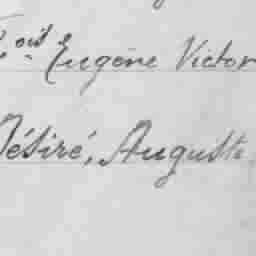 Eugène Victor
Désiré, Auguste